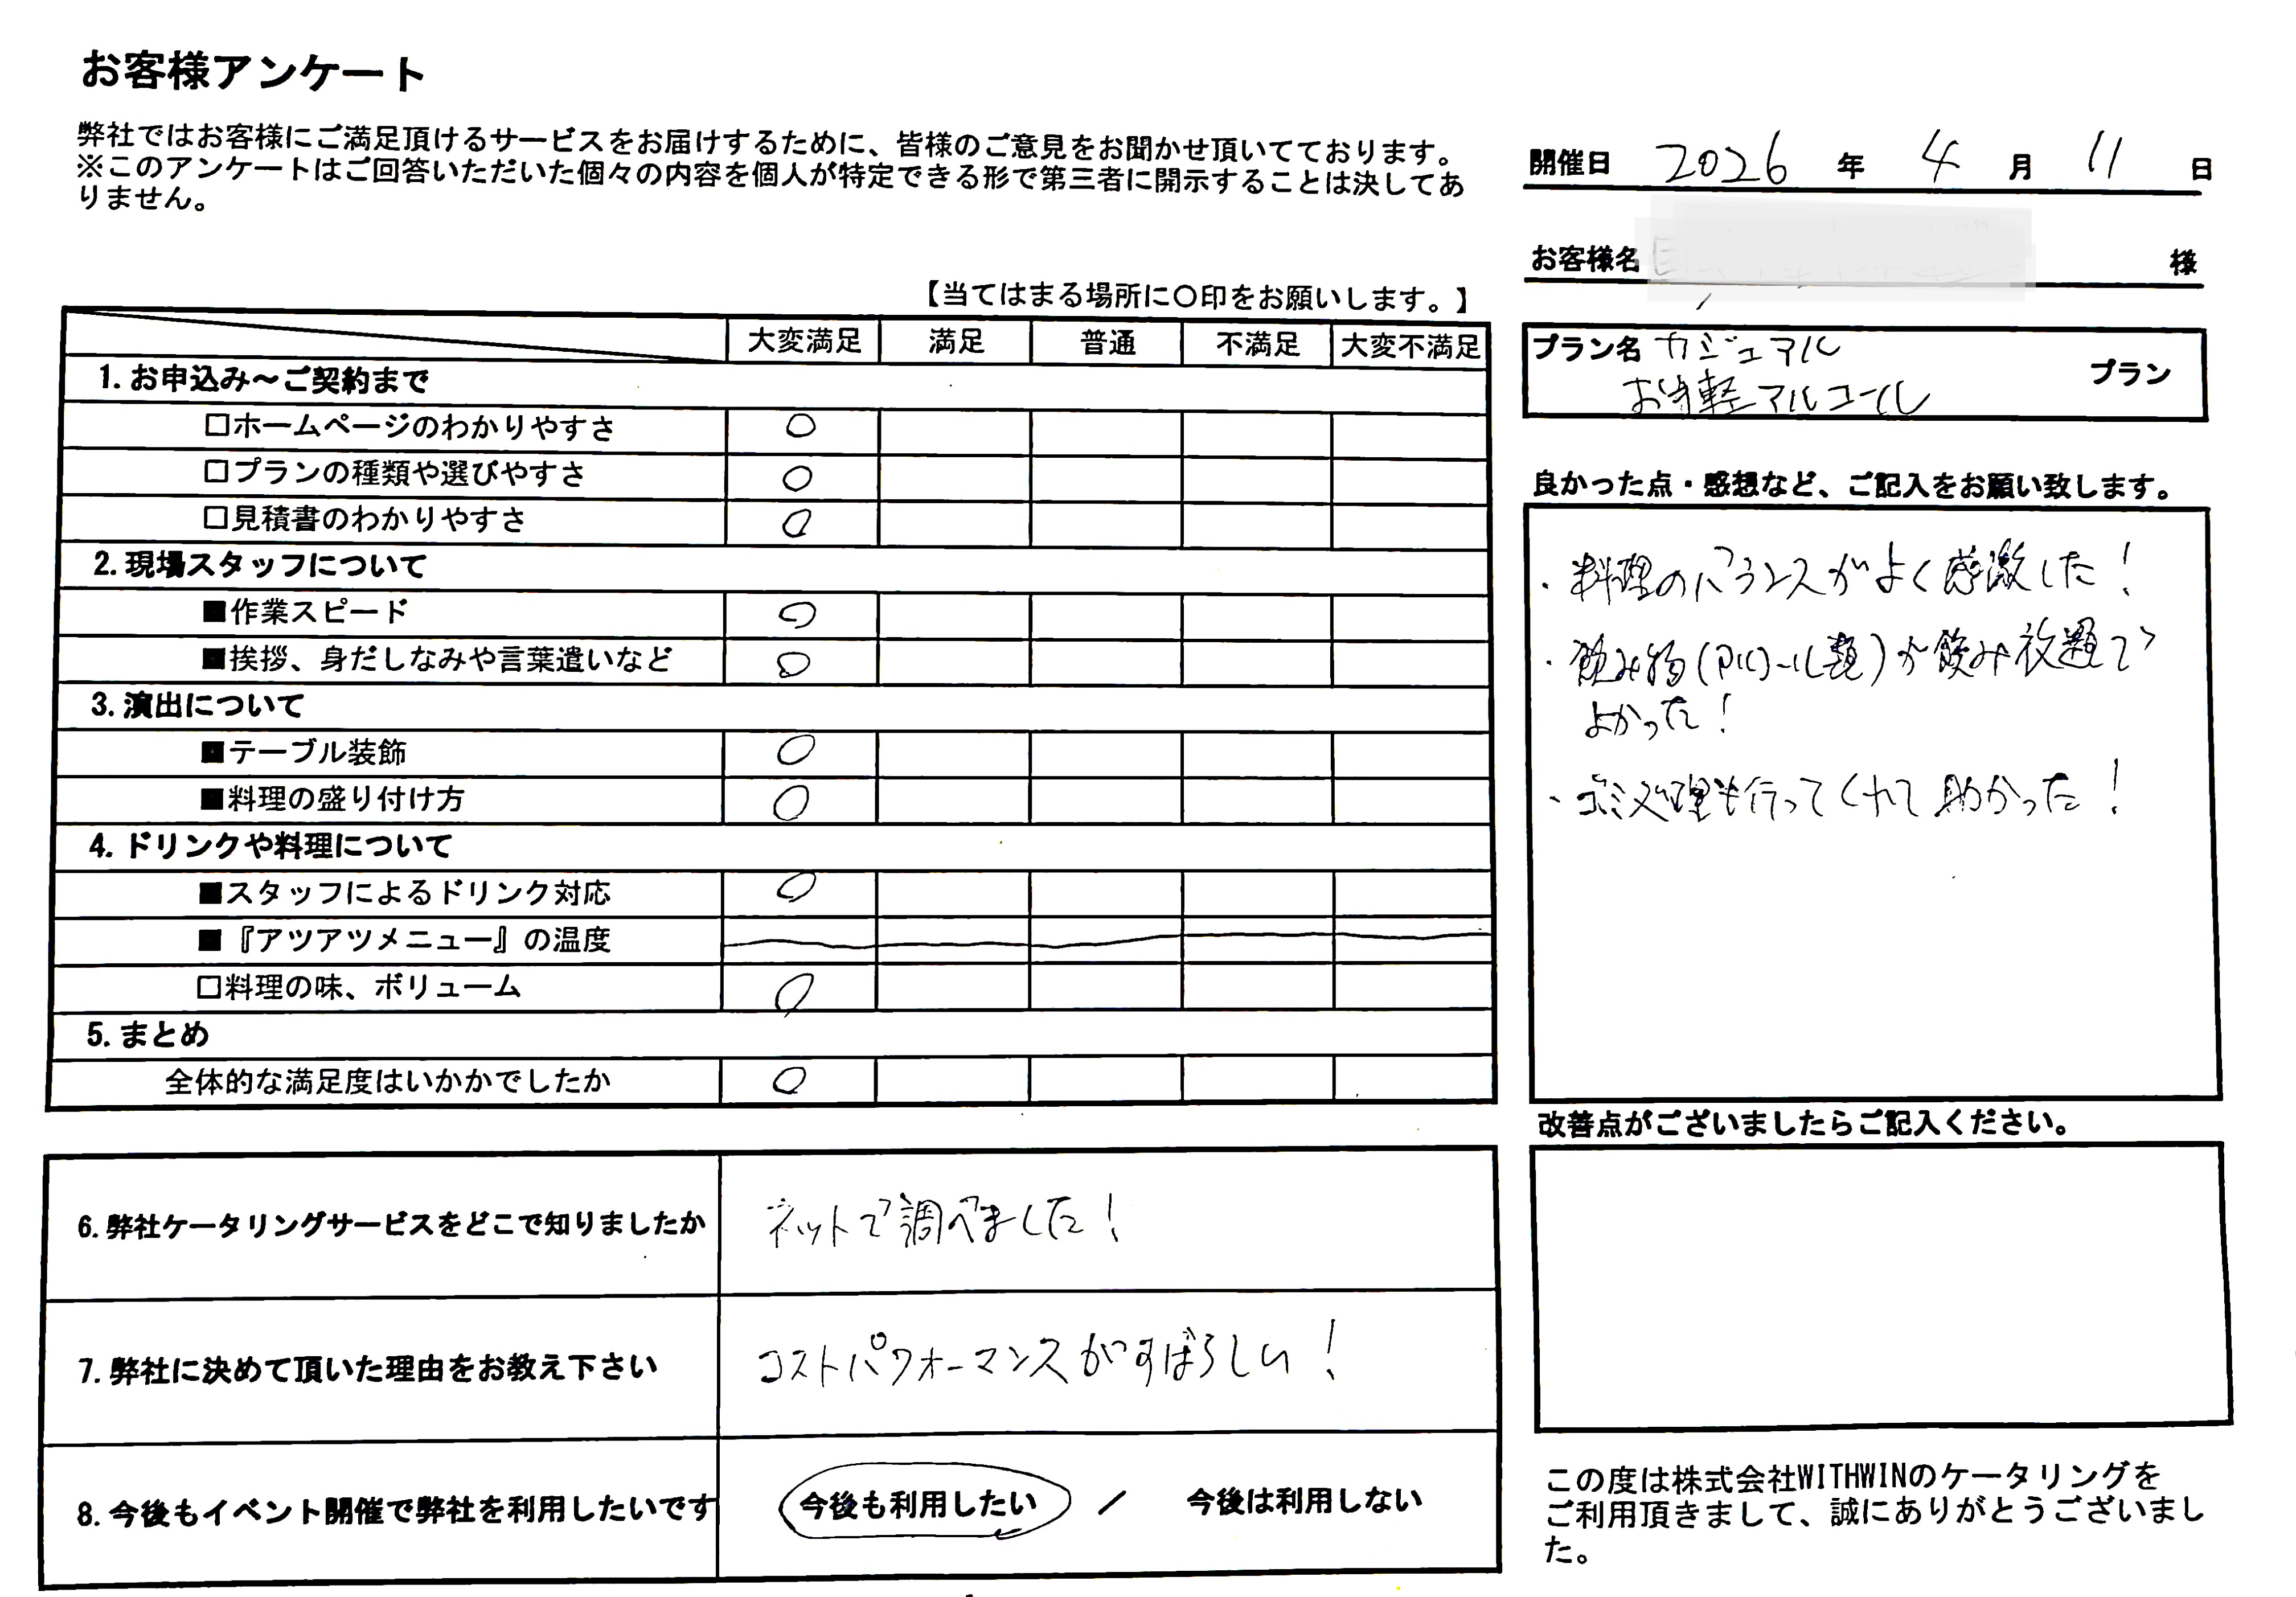 お客様アンケート
弊社ではお客様にご満足頂けるサービスをお届けするために、皆様のご意見をお聞かせ頂いてております。
※このアンケートはご回答いただいた個々の内容を個人が特定できる形で第三者に開示することは決してあ
りません。
開催日 2026 年 4 月 11 日
お客様名 様
【当てはまる場所に〇印をお願いします。】
プラン名 カジュアル
お手軽アルコール
プラン
大変満足 満足 普通 不満足 大変不満足
1. お申込み～ご契約まで
□ホームページのわかりやすさ ○
□プランの種類や選びやすさ ○
□見積書のわかりやすさ ○
2. 現場スタッフについて
■作業スピード ○
■挨拶、身だしなみや言葉遣いなど ○
3. 演出について
■テーブル装飾 ○
■料理の盛り付け方 ○
4. ドリンクや料理について
■スタッフによるドリンク対応 ○
■『アツアツメニュー』の温度
□料理の味、ボリューム ○
5. まとめ
全体的な満足度はいかかでしたか ○
良かった点・感想など、ご記入をお願い致します。
・料理のバランスがよく感激した！
・飲み物(アルコール類)が飲み放題で
よかった！
・ゴミ処理も行ってくれて助かった！
改善点がございましたらご記入ください。
6. 弊社ケータリングサービスをどこで知りましたか ネットで調べました！
7. 弊社に決めて頂いた理由をお教え下さい コストパフォーマンスがすばらしい！
8. 今後もイベント開催で弊社を利用したいです 今後も利用したい / 今後は利用しない
この度は株式会社WITHWINのケータリングを
ご利用頂きまして、誠にありがとうございまし
た。